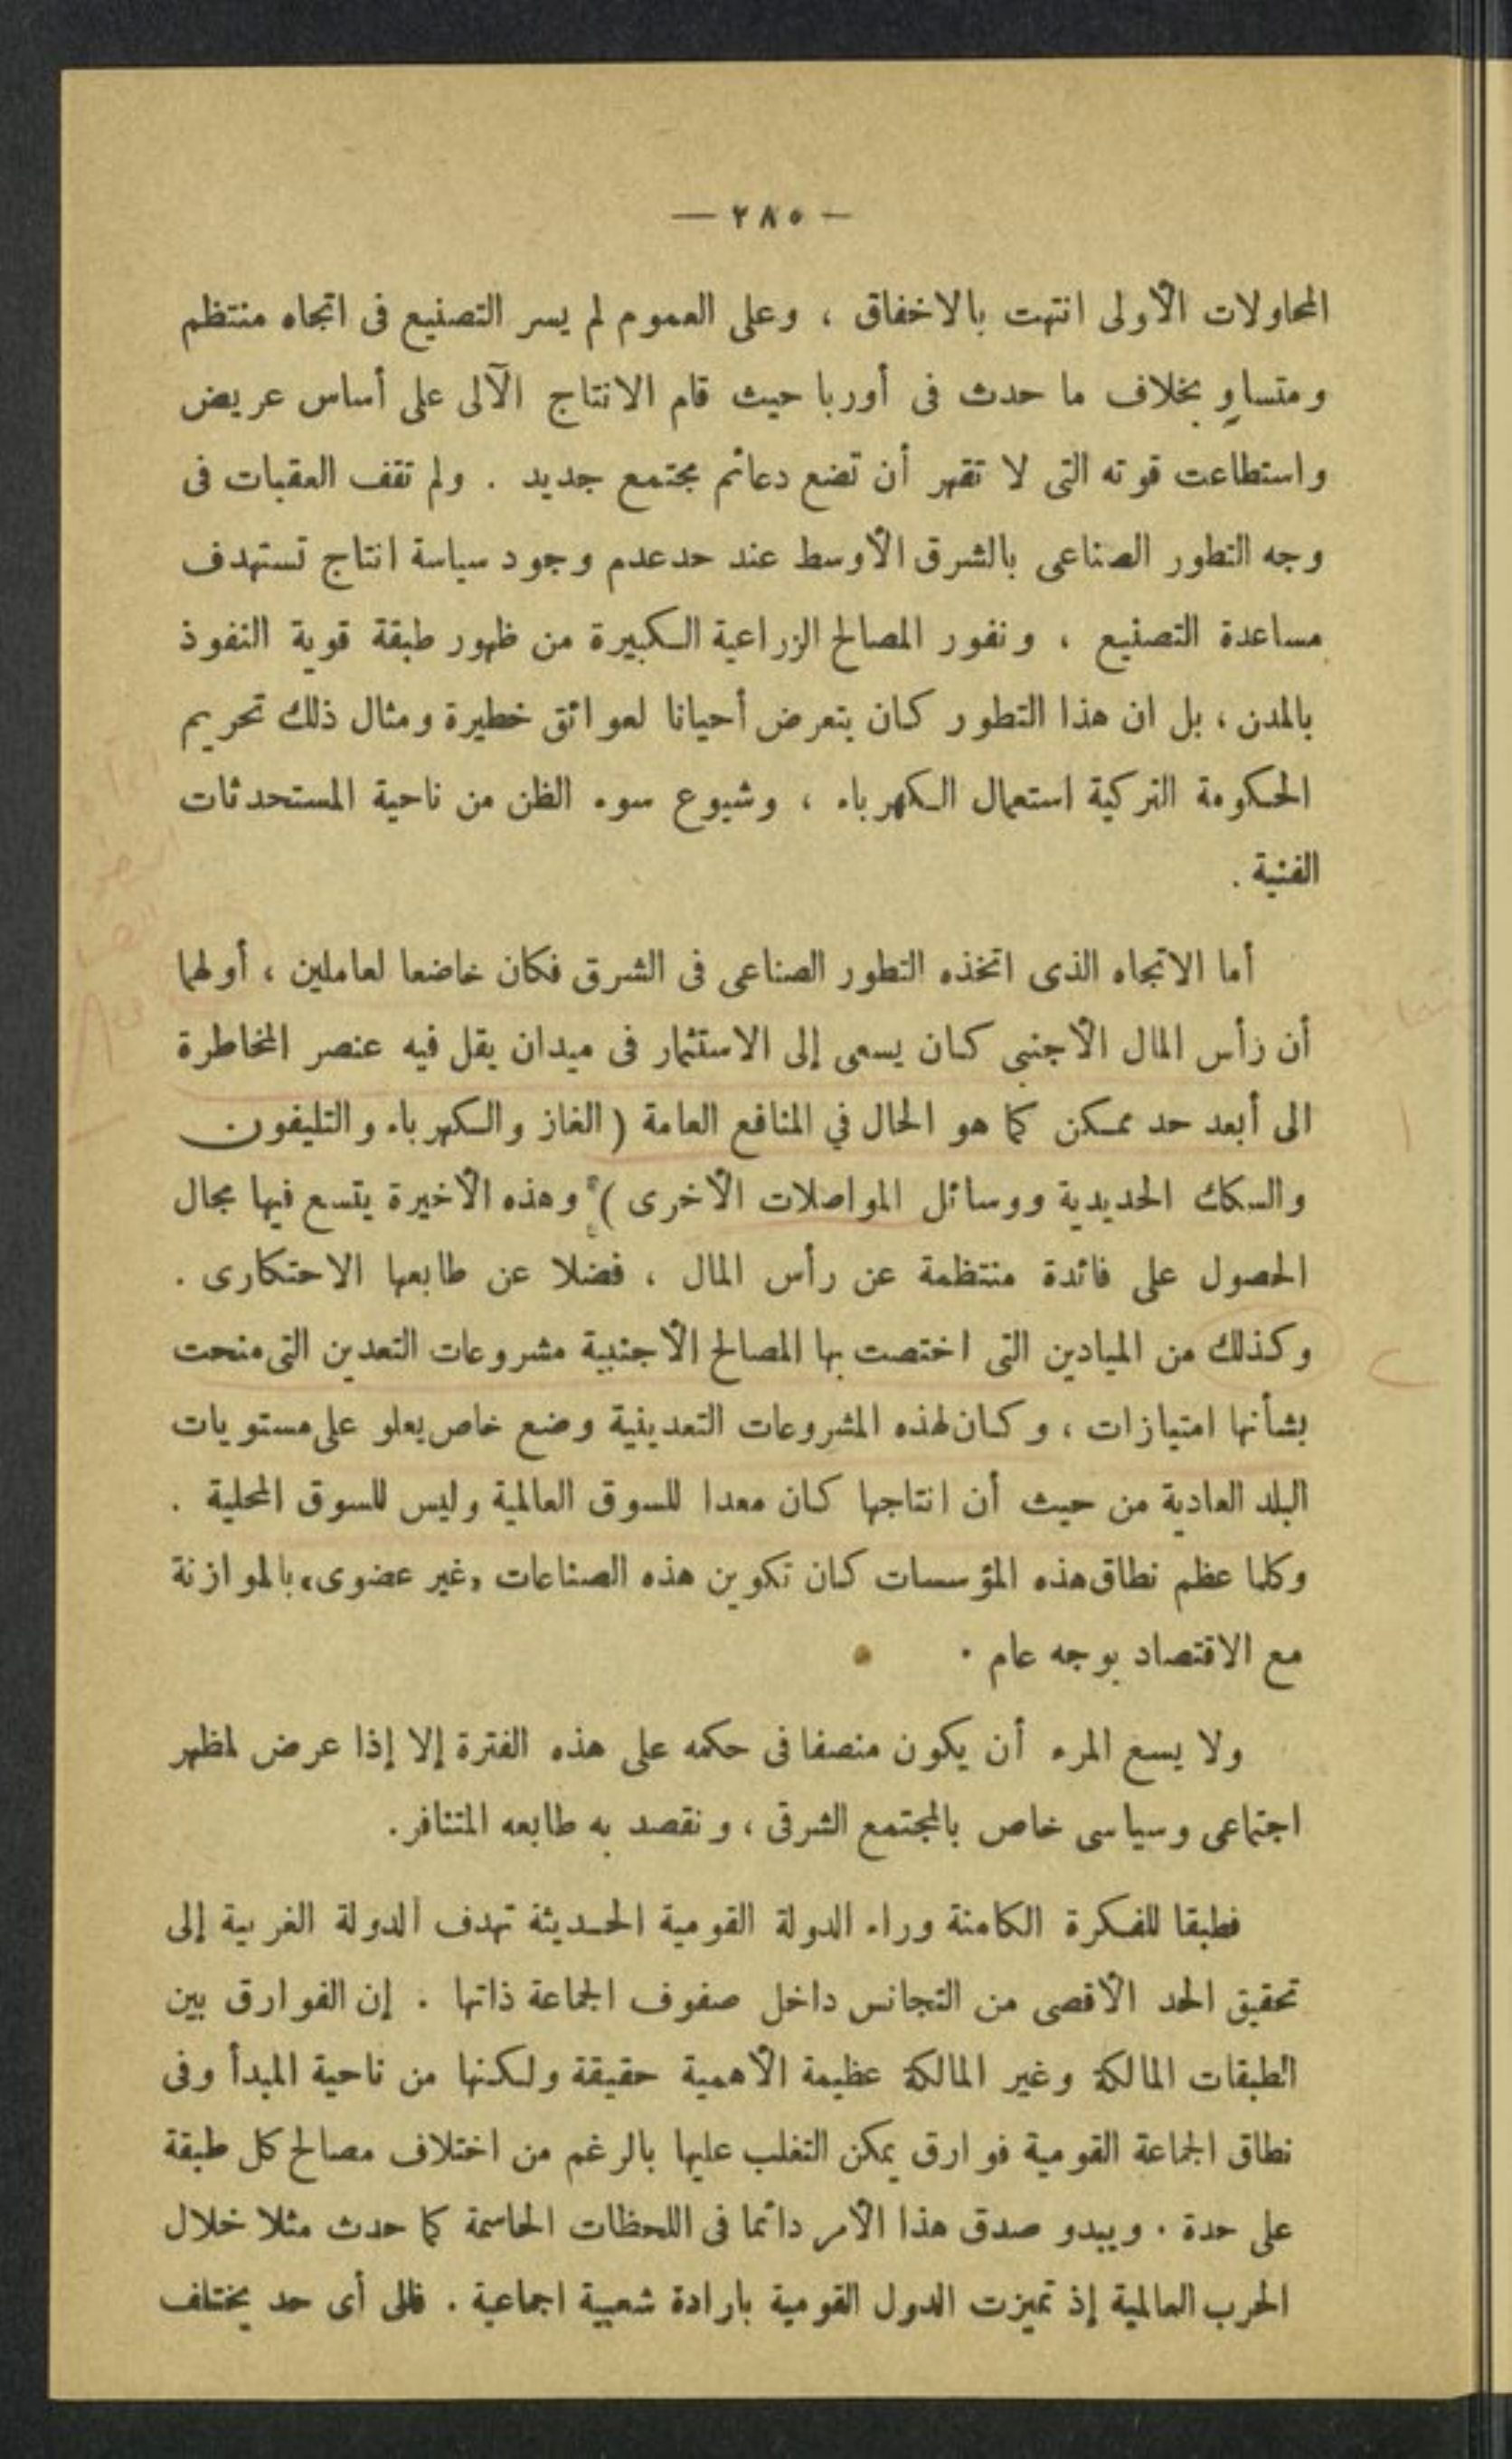 — ٢٨٥ —
المحاولات الأولى انتهت بالاخفاق ، وعلى العموم لم يسر التصنيع فى اتجاه منتظم
ومتساوٍ بخلاف ما حدث فى أوربا حيث قام الانتاج الآلى على أساس عريض
واستطاعت قوته التى لا تقهر أن تضع دعائم مجتمع جديد . ولم تقف العقبات فى
وجه التطور الصناعى بالشرق الأوسط عند حد عدم وجود سياسة انتاج تستهدف
مساعدة التصنيع ، ونفور المصالح الزراعية الكبيرة من ظهور طبقة قوية النفوذ
بالمدن ، بل ان هذا التطور كان يتعرض أحيانا لعوائق خطيرة ومثال ذلك تحريم
الحكومة التركية استعمال الكهرباء ، وشيوع سوء الظن من ناحية المستحدثات
الفنية .
أما الاتجاه الذى اتخذه التطور الصناعى فى الشرق فكان خاضعا لعاملين ، أولهما
أن رأس المال الأجنبى كان يسعى إلى الاستثمار فى ميدان يقل فيه عنصر المخاطرة
الى أبعد حد ممكن كما هو الحال في المنافع العامة ( الغاز والكهرباء والتليفون
والسكك الحديدية ووسائل المواصلات الأخرى ) وهذه الأخيرة يتسع فيها مجال
الحصول على فائدة منتظمة عن رأس المال ، فضلا عن طابعها الاحتكارى .
وكذلك من الميادين التى اختصت بها المصالح الأجنبية مشروعات التعدين التى منحت
بشأنها امتيازات ، وكان لهذه المشروعات التعدينية وضع خاص يعلو على مستويات
البلد العادية من حيث أن انتاجها كان معدا للسوق العالمية وليس للسوق المحلية .
وكلما عظم نطاق هذه المؤسسات كان تكوين هذه الصناعات «غير عضوى» بالموازنة
مع الاقتصاد بوجه عام .
ولا يسع المرء أن يكون منصفا فى حكمه على هذه الفترة إلا إذا عرض لمظهر
اجتماعى وسياسى خاص بالمجتمع الشرقى ، ونقصد به طابعه المتنافر.
فطبقا للفكرة الكامنة وراء الدولة القومية الحديثة تهدف الدولة الغربية إلى
تحقيق الحد الأقصى من التجانس داخل صفوف الجماعة ذاتها . إن الفوارق بين
الطبقات المالكة وغير المالكة عظيمة الأهمية حقيقة ولكنها من ناحية المبدأ وفى
نطاق الجماعة القومية فوارق يمكن التغلب عليها بالرغم من اختلاف مصالح كل طبقة
على حدة . ويبدو صدق هذا الأمر دائما فى اللحظات الحاسمة كما حدث مثلا خلال
الحرب العالمية إذ تميزت الدول القومية بارادة شعبية اجماعية . فالى أى حد يختلف